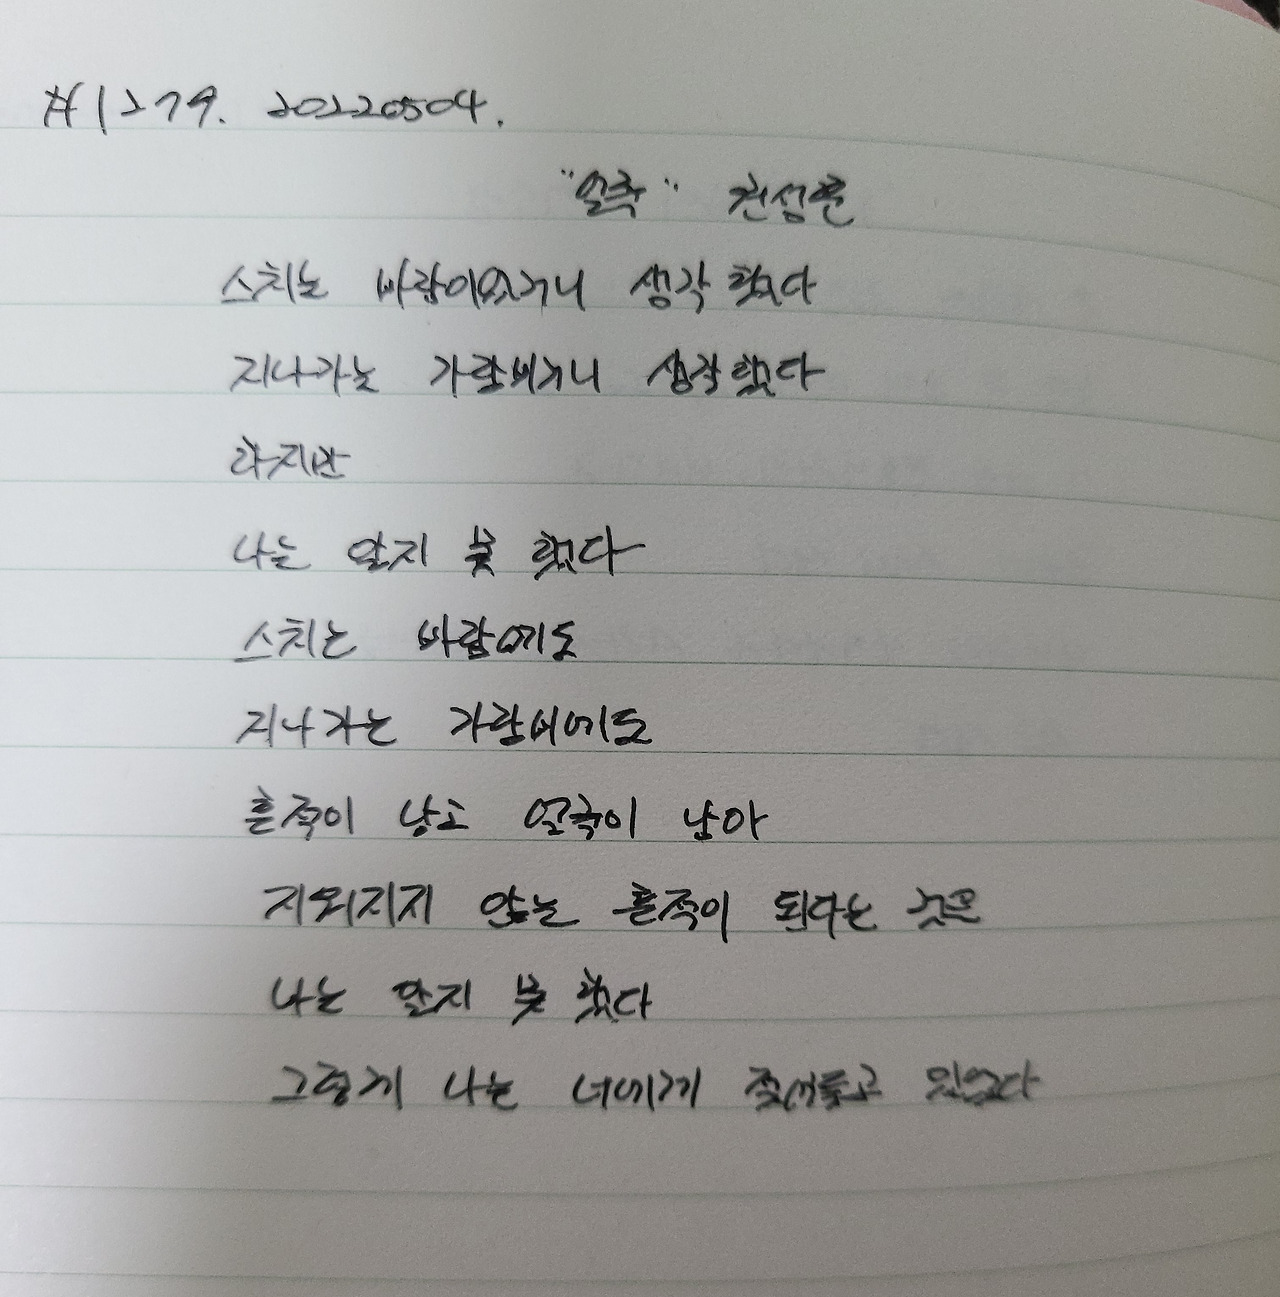 #1279. 20220504.
"얼룩" 천성호
스치는 바람이었거니 생각 했다
지나가는 가랑비거니 생각 했다
하지만
나는 알지 못 했다
스치는 바람에도
지나가는 가랑비에도
흔적이 남고 얼룩이 남아
지워지지 않는 흔적이 된다는 것을
나는 알지 못 했다
그렇게 나는 너에게 젖어들고 있었다